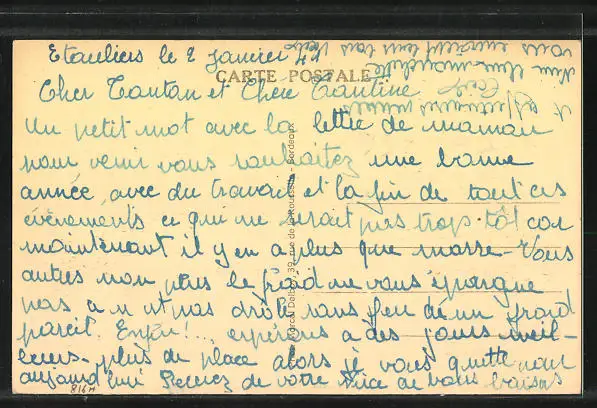 Etauliers le 2 Janvier 41
CARTE POSTALE
Cher Tonton et Chère Tantine
Un petit mot avec la lettre de maman
pour venir vous souhaitez une bonne
année avec du travail et la fin de tout ces
événements ce qui ne serait pas trop tôt car
maintenant il y en a plus que marre. Vous
autres non plus le froid ne vous épargne
pas a n'est pas drôle sans feu de un froid
pareil. Enfin!... espérons a des jours meil-
leurs. plus de place alors je vous quitte pour
aujourd'hui Recevez de votre Nièce de bons baisers
vous envoient tous
et affectueuses
39, rue de Bordeaux
816H